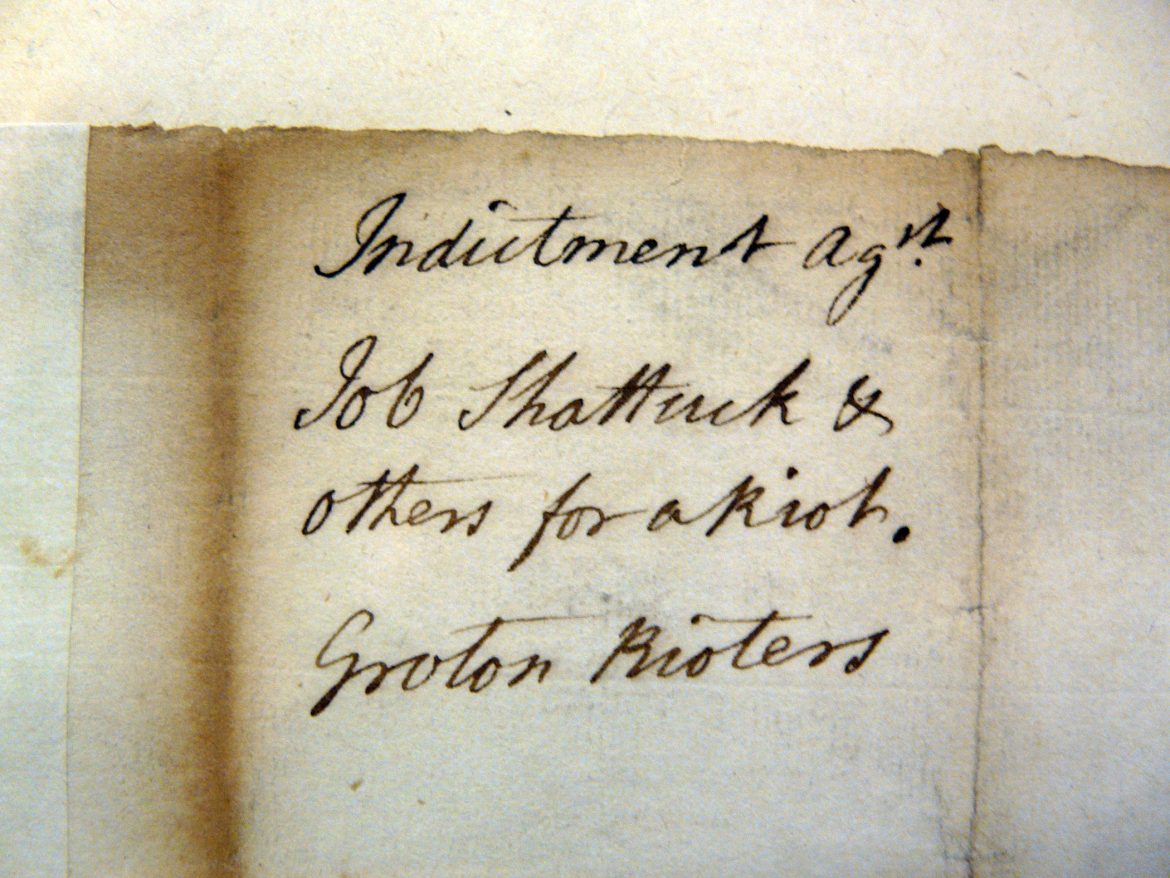 Indictment agst.
Job Shattuck &
others for a Riot.
Groton Rioters